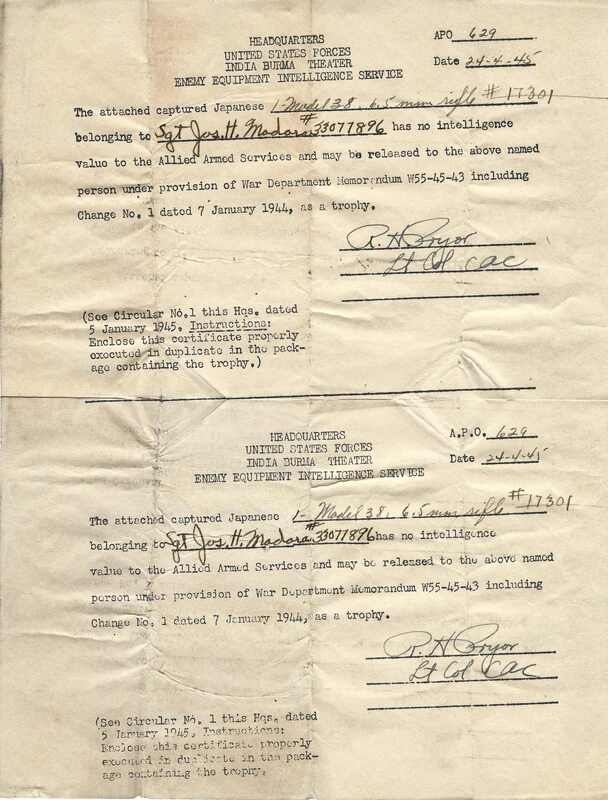 HEADQUARTERS
UNITED STATES FORCES
INDIA BURMA THEATER
ENEMY EQUIPMENT INTELLIGENCE SERVICE
APO 629
Date 24-4-45
The attached captured Japanese 1-Model 38, 6.5 mm rifle #17301
belonging to Sgt Jos. H. Madara #33077896 has no intelligence
value to the Allied Armed Services and may be released to the above named
person under provision of War Department Memorandum W55-45-43 including
Change No. 1 dated 7 January 1944, as a trophy.
R. H Pryor
Lt Col CAC
(See Circular No.1 this Hqs. dated
5 January 1945. Instructions:
Enclose this certificate properly
executed in duplicate in the pack-
age containing the trophy.)
HEADQUARTERS
UNITED STATES FORCES
INDIA BURMA THEATER
ENEMY EQUIPMENT INTELLIGENCE SERVICE
A.P.O. 629
Date 24-4-45
The attached captured Japanese 1- Model 38, 6.5mm rifle #17301
belonging to Sgt Jos. H. Madara #33077896 has no intelligence
value to the Allied Armed Services and may be released to the above named
person under provision of War Department Memorandum W55-45-43 including
Change No. 1 dated 7 January 1944, as a trophy.
R. H Pryor
Lt Col CAC
(See Circular No. 1 this Hqs. dated
5 January 1945. Instructions:
Enclose this certificate properly
executed in duplicate in the pack-
age containing the trophy.